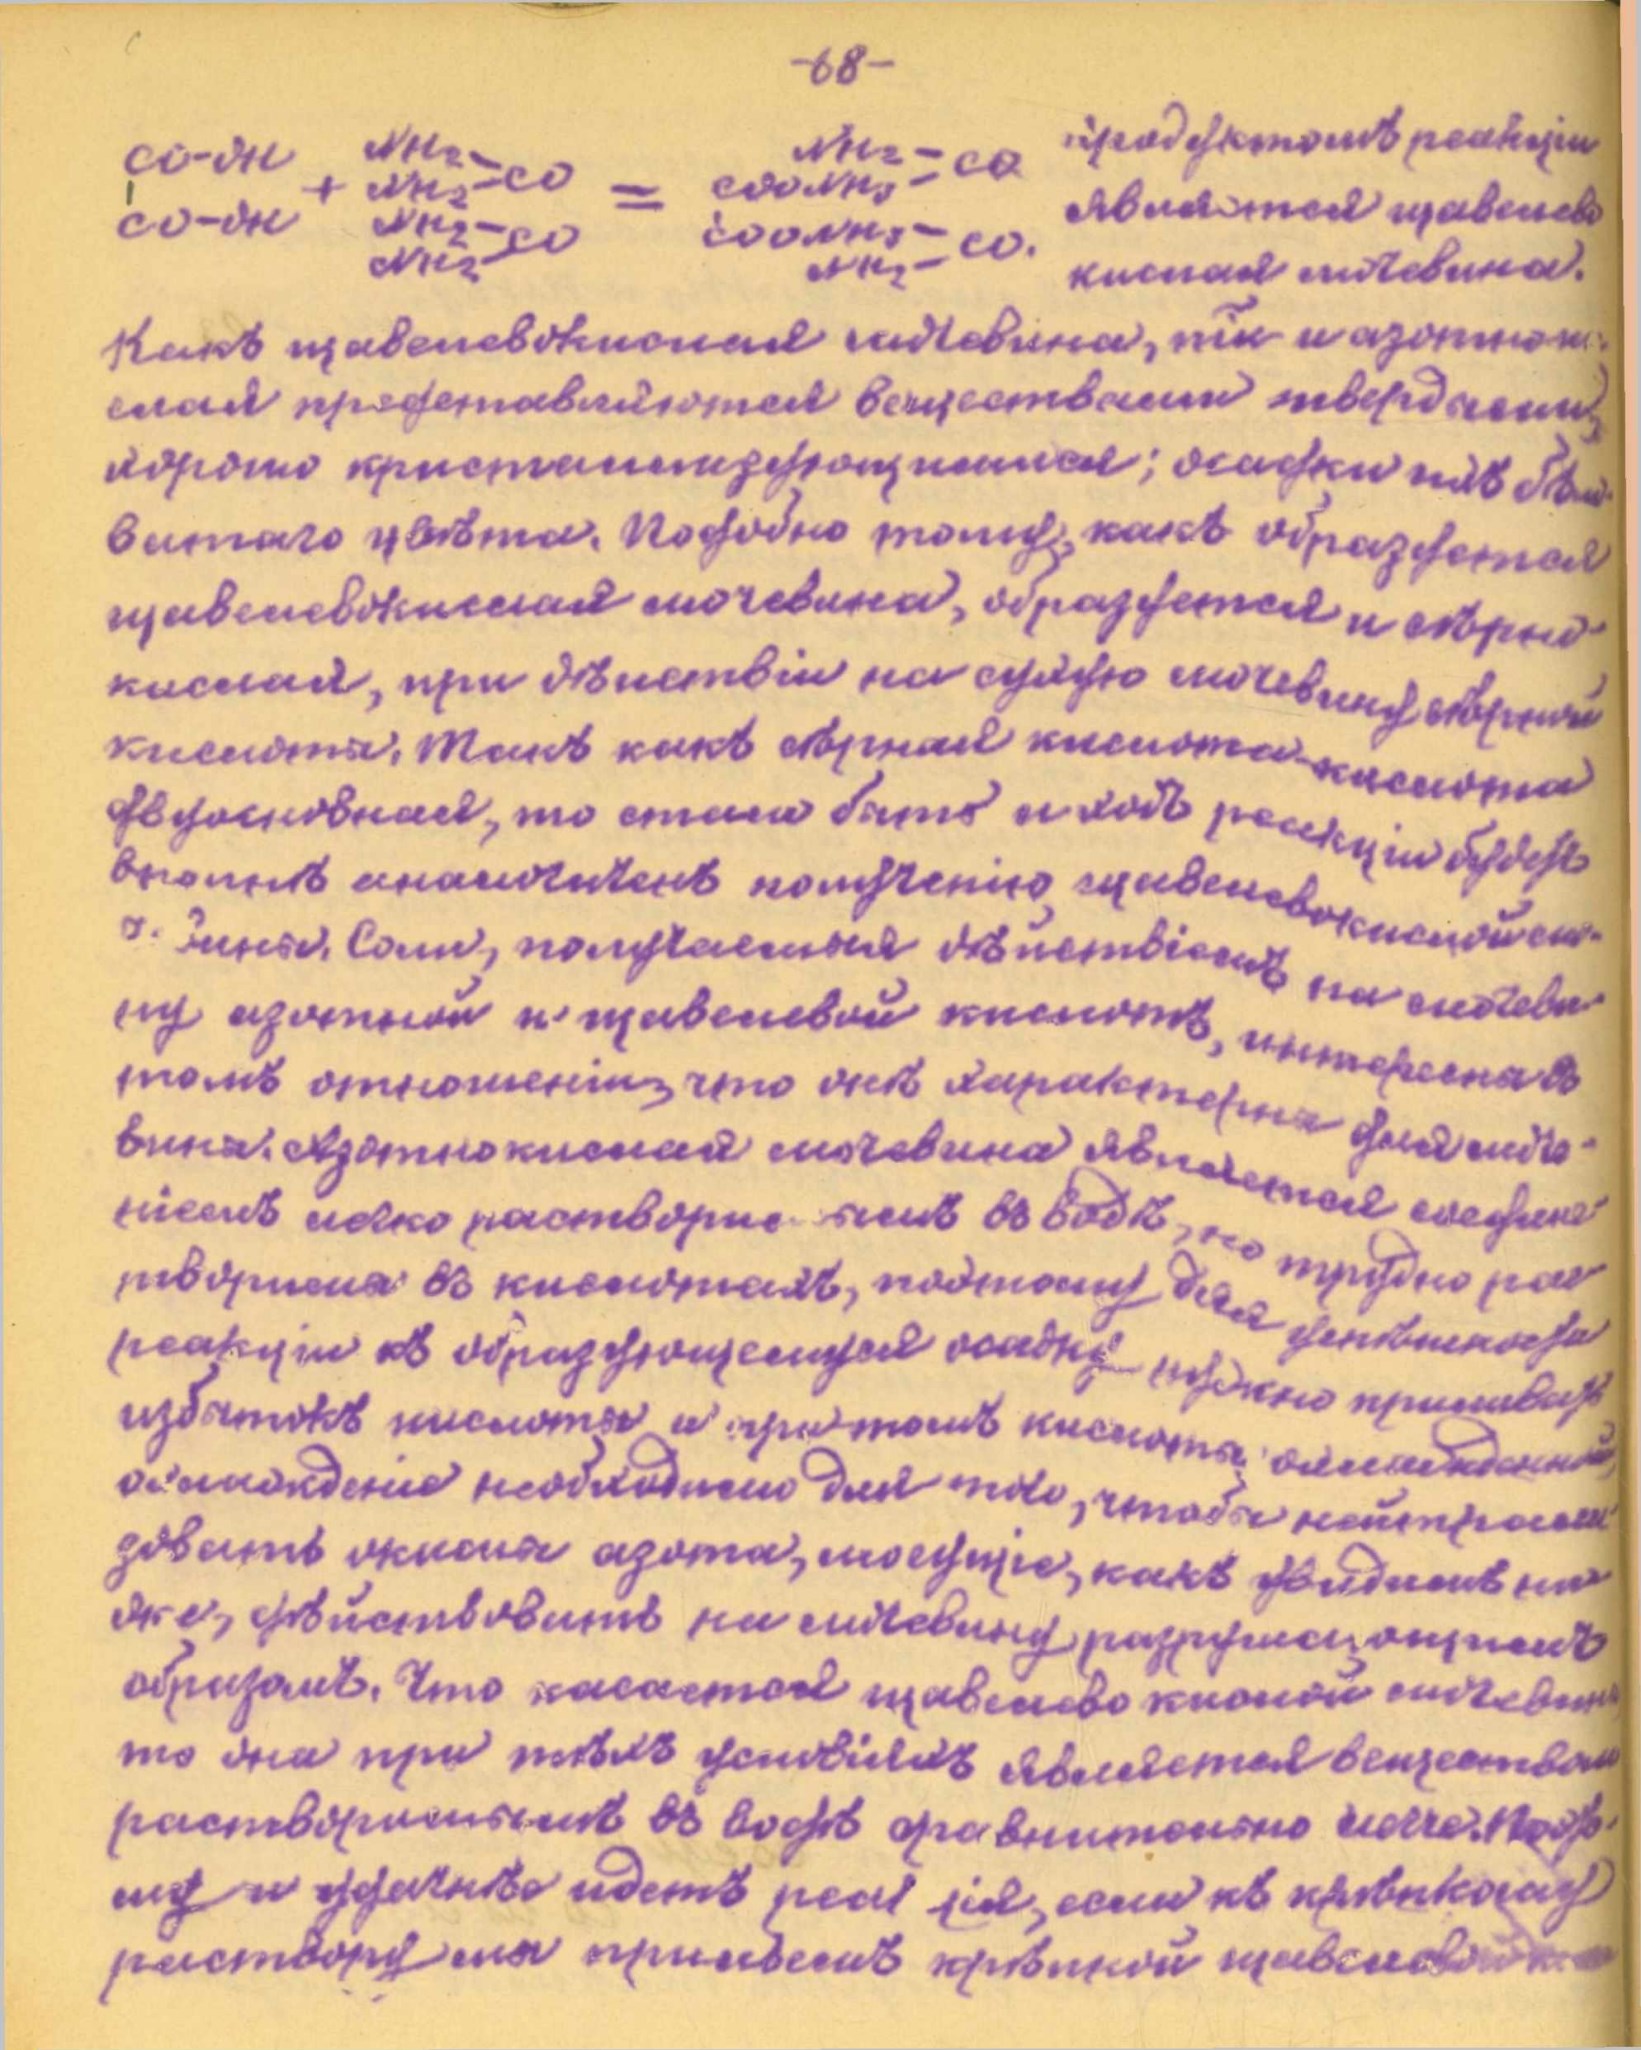 -68-
CO-OH + NH2 NH2 =CO NH2 NH2 =CO = NH2 COONH3 =CO COONH3 NH2 =CO. продуктомъ реакціи
CO-OH является щавелево
кислая мочевина.
Какъ щавелевокислая мочевина, такъ и азотноки-
слая представляются веществами твердыми,
хорошо кристаллизующимися; осадки ихъ бѣло-
ватаго цвѣта. Подобно тому, какъ образуется
щавелевокислая мочевина, образуется и сѣрно-
кислая, при дѣйствіи на сухую мочевину сѣрной
кислоты. Такъ какъ сѣрная кислота-кислота
двуосновная, то стало быть и ходъ реакціи будетъ
вполнѣ аналогиченъ полученію щавелевокислой мо-
чевины. Соли, получаемыя дѣйствіемъ на мочеви-
ну азотной и щавелевой кислотъ, интересны въ
томъ отношеніи, что онѣ характерны для моче-
вины. Азотнокислая мочевина является соедине-
ніемъ легко растворимымъ въ водѣ, но трудно рас
творима въ кислотахъ, поэтому для успѣшности
реакціи къ образующемуся осадку нужно приливать
избытокъ кислоты и притомъ кислоты охлажденной,
охлажденіе необходимо для того, чтобы нейтрали
зовать окислы азота, могущіе, какъ увидимъ ни
же, дѣйствовать на мочевину разрушающимъ
образомъ. Что касается щавелево кислой мочевины
то она при тѣхъ условіяхъ является веществомъ
растворимымъ въ водѣ сравнительно легче. Поэто-
му и удачнѣе идетъ реакція, если къ крѣпкому
раствору мы прильемъ крѣпкой щавелевой